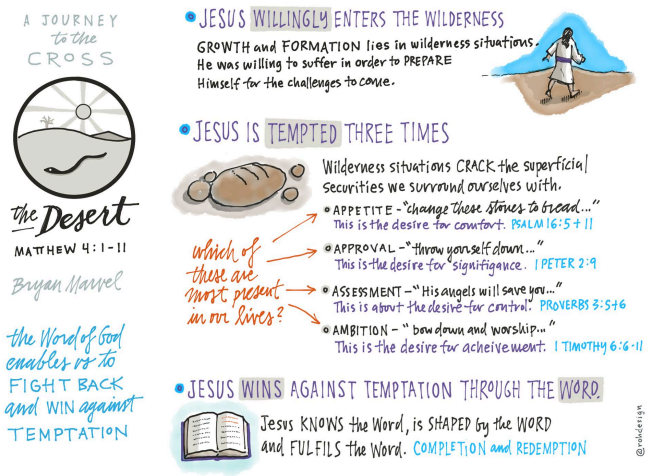 A JOURNEY
to the
CROSS
the Desert
MATTHEW 4:1-11
Bryan Marvel
the Word of God
enables us to
FIGHT BACK
and WIN against
TEMPTATION
JESUS WILLINGLY ENTERS THE WILDERNESS
GROWTH and FORMATION lies in wilderness situations.
He was willing to suffer in order to PREPARE
Himself for the challenges to come.
JESUS IS TEMPTED THREE TIMES
Wilderness situations CRACK the superficial
securities we surround ourselves with.
which of
these are
most present
in our lives?
APPETITE - "change these stones to bread..."
This is the desire for comfort. PSALM 16:5+11
APPROVAL - "throw yourself down..."
This is the desire for signifigance. 1 PETER 2:9
ASSESSMENT - "His angels will save you..."
This is about the desire for control. PROVERBS 3:5+6
AMBITION - "bow down and worship..."
This is the desire for acheivement. 1 TIMOTHY 6:6-11
JESUS WINS AGAINST TEMPTATION THROUGH THE WORD.
Jesus KNOWS the Word, is SHAPED by the WORD
and FULFILS the Word. COMPLETION and REDEMPTION
@rohdesign